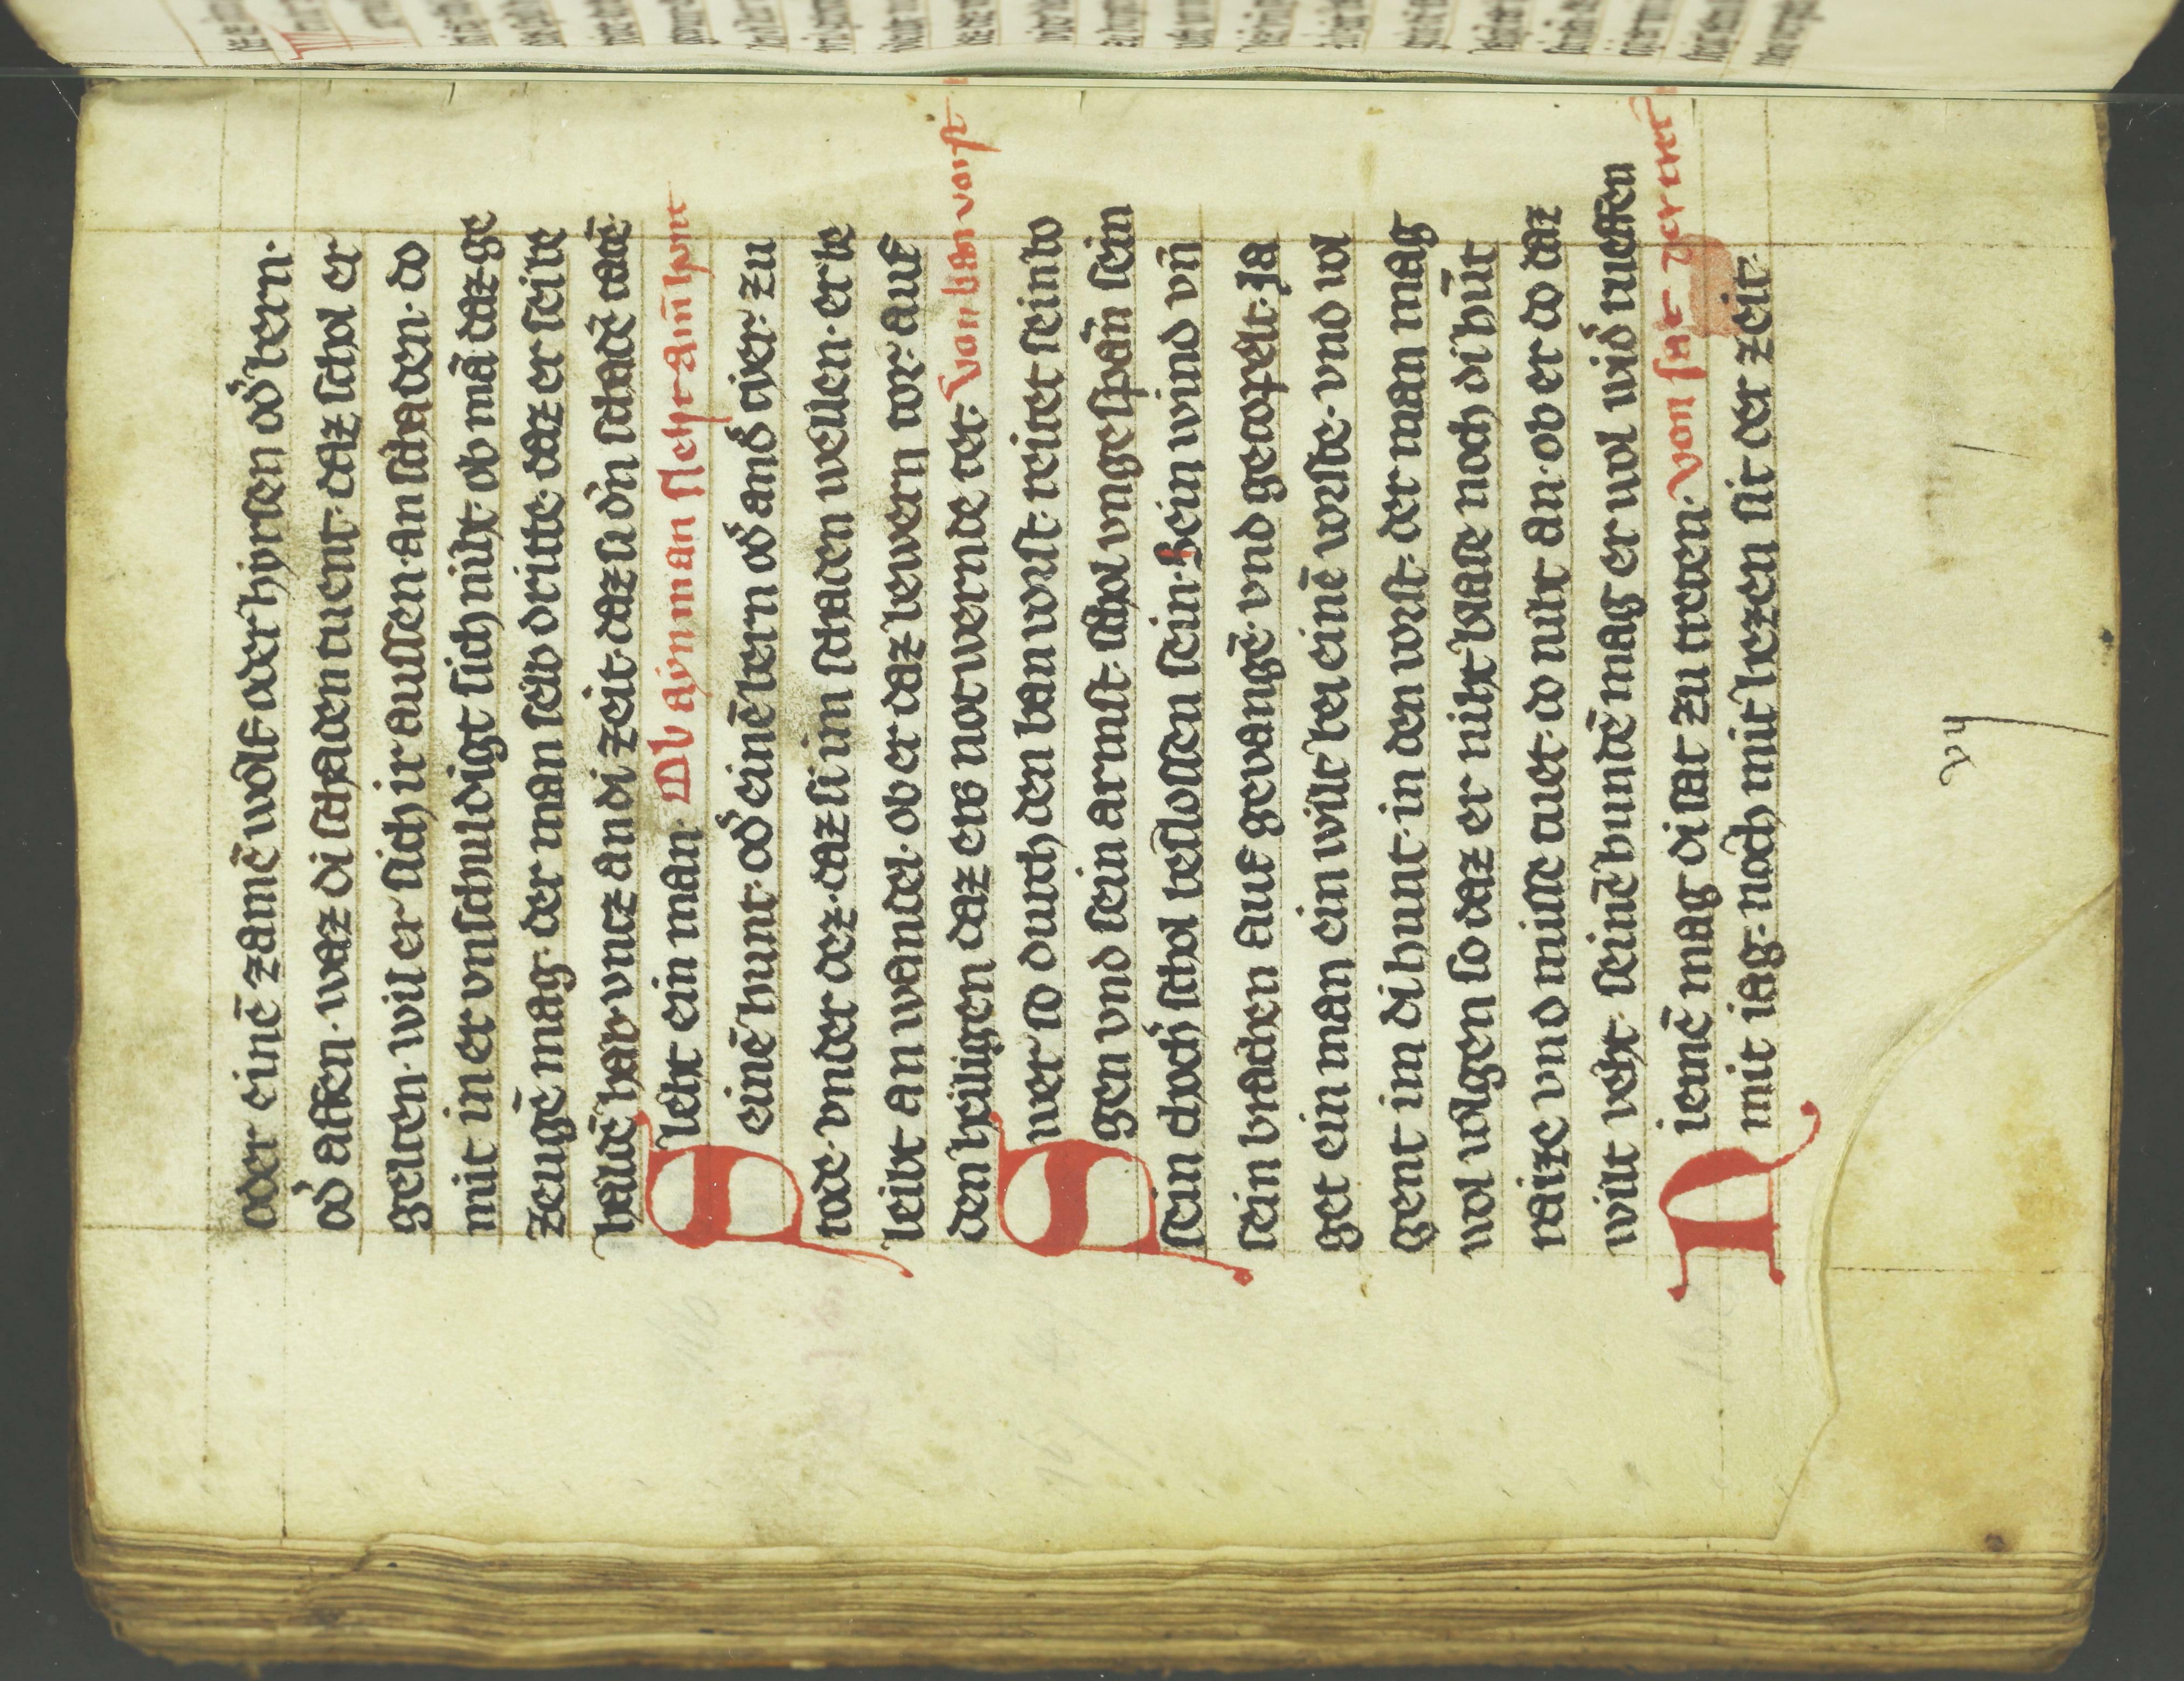 oder einē zamē wolf oder hyrsen od᷎ bern·
od᷎ affen· waz di schaden tuent· daz schol er
gelten· wil er sich ir aussen· an schaden· do
mit in er vnschuldigt sich niht· ob mā daz ge
zeugē mag· der man selb dritte· daz er seite
haldē hab vncz an di zeit· daz si dn̄ schadē tatē·
Slecht ein man· Ob ayn man sleht am̄ hunt
einē hunt· od᷎ einē bern od᷎ and᷎ tyer· zu
tode· vnder dez· daz si im schaden wellen· er be
leibt an wandel· ob er daz bewern tor· auf
den heiligen daz erz notwernde tet· Von ban vorst
Swer so durch den ban vorst· reitet sein bo
gen vnd sein armst· schol vngespañ sein
sein choch᷎ schol beslossen sein· Sein wind vn̄
sein brachen auf gevangē· vnd gecopelt· Ja
get ein man ein wilt bei einē vorste· vnd vol
gent im di hunt· in den vorst· der man mag
wol volgen so daz er niht blase noch di hūt
raize vnd misse tuet· do niht an· ob er do daz
wilt veht· seinē hundē mag er wol wid᷎ rueffen
iemē mag di sat zu treten· von sat der trit
Nmit iag· noch mit hezen sit der zeit·
vij